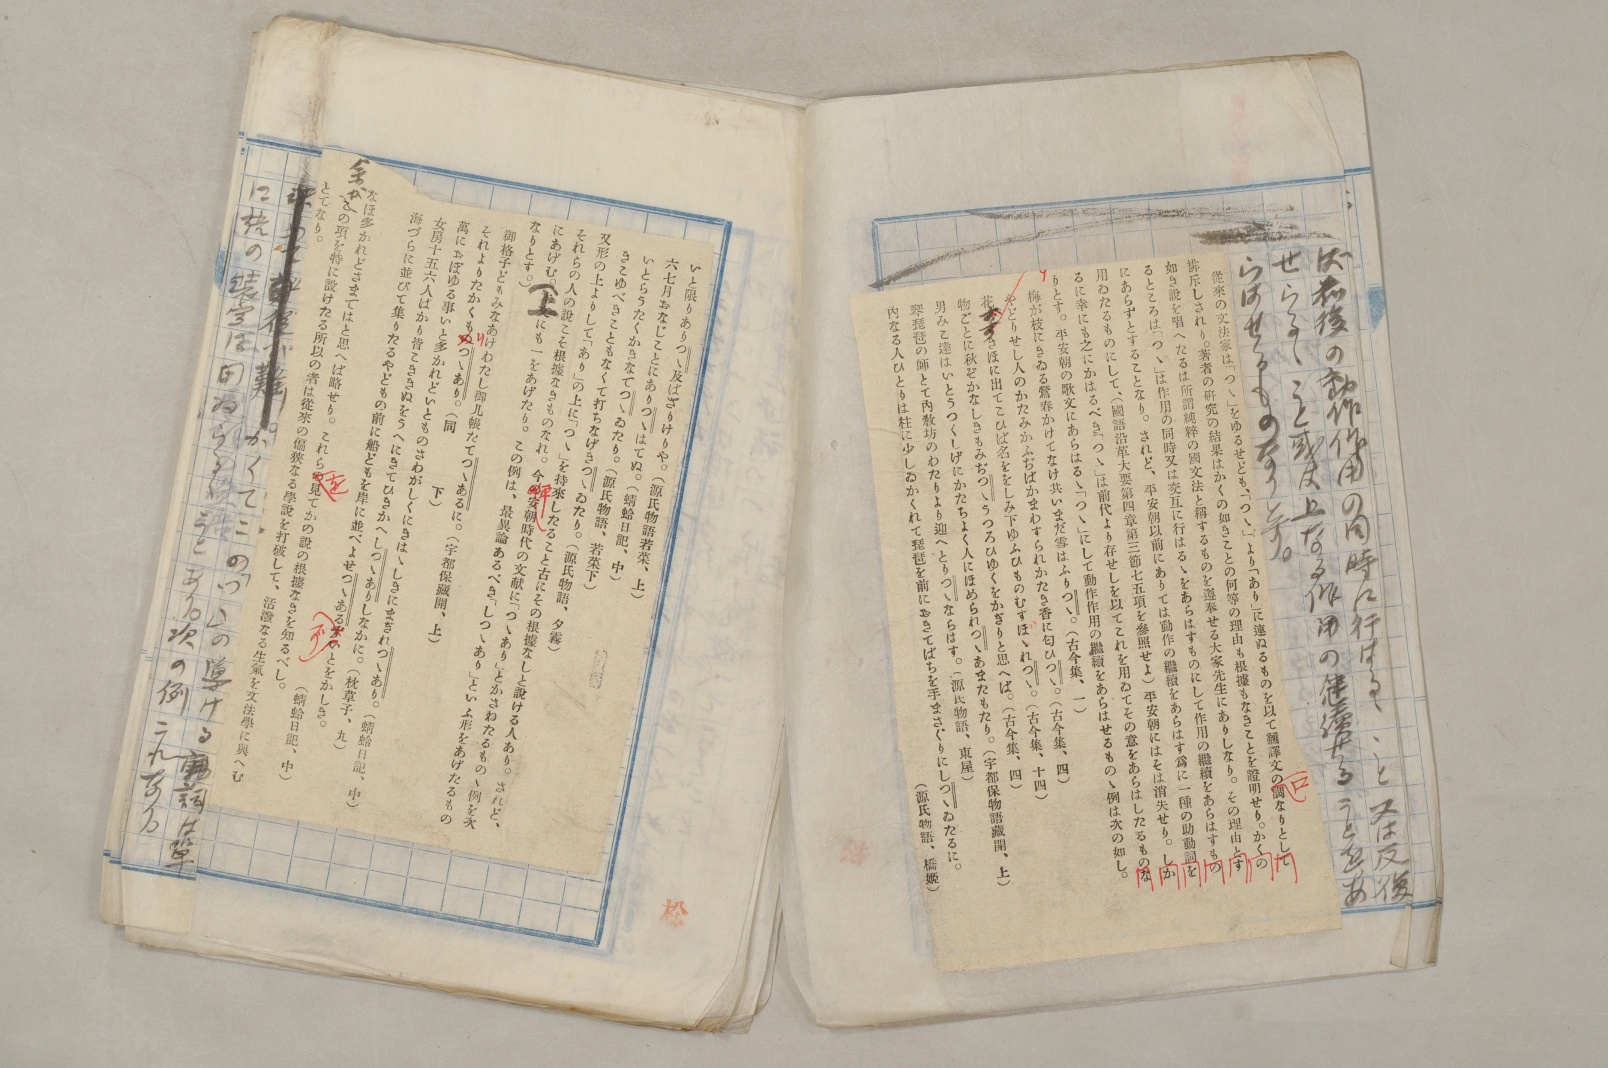 ば前後の動作作用の同時に行はるゝこと又は反復
せらるゝこと或は上なる作用の継續せることをあ
らはせるものなりとす。
從來の文法家は「つゝ」をゆるせども、「つゝ」より「あり」に連ぬるものを以て飜譯文の調なりとして
排斥しされり。著者の研究の結果はかくの如きことの何等の理由も根據もなきことを證明せり。かくの
如き説を唱へたるは所謂純粹の國文法と稱するものを遵奉せる大家先生にありしなり。その理由とす
るところは「つゝ」は作用の同時又は交互に行はるゝをあらはすものにして作用の繼續をあらはすもの
にあらずとすることなり。されど、平安朝以前にありては動作の繼續をあらはす爲に一種の助動詞を
用ゐたるものにして、(國語沿革大要第四章第三節七五項を參照せよ)平安朝にはそは消失せり。しか
るに幸にも之にかはるべき「つゝ」は前代より存せしを以てこれを用ゐてその意をあらはしたるものな
りとす。平安朝の歌文にあらはるゝ「つゝ」にして動作作用の繼續をあらはせるものゝ例は次の如し。
梅が枝にきゐる鶯春かけてなけ共いまだ雪はふりつゝ。(古今集、一)
やどりせし人のかたみかふぢばかまわすられかたき香に匂ひつゝ。(古今集、四)
花すゝきほに出てこひば名ををしみ下ゆふひものむすほゝれつゝ。(古今集、十四)
物ごとに秋ぞかなしきもみぢつゝうつろひゆくをかぎりと思へば。(古今集、四)
男みこ達はいとうつくしげにかたちよく人にほめられつゝあまたもたり。(宇都保物語藏開、上)
琴琵琶の師とて内敎坊のわたりより迎へとりつゝならはす。(源氏物語、東屋)
内なる人ひとりは柱に少しゐかくれて琵琶を前におきてばちを手まさぐりにしつゝゐたるに。
(源氏物語、橋姫)
いと限りありつゝ及ばざりけりや。(源氏物語若菜、上)
六七月おなじことにありつゝはてぬ。(蜻蛤日記、中)
いとらうたくかきなてつゝゐたり。(源氏物語、若菜下)
きこゆべきこともなくて打ちなげきつゝゐたり。(源氏物語、夕霧)
又形の上よりして「あり」の上に「つゝ」を持來したること古にその根據なしと説ける人あり。されど、
それらの人の説こそ根據なきものなれ。今平安朝時代の文献に「つゝあり」とかさねたるものゝ例を次
にあげむ。(上文にも一をあげたり。この例は、最異論あるべき「しつゝあり」といふ形をあげたるもの
なりとす。)
御格子どもみなあけわたし御几帳たてつゝあるに。(宇都保藏開、上)
それよりたかくもりつゝあり。(同 下)
萬におぼゆる事いと多かれどいとものさわがしくにきはゝしきにまぎれつゝあり。(蜻蛤日記、中)
女房十五六人ばかり皆こききぬをうへにきてひきかへしつゝありしなかに。(枕草子、九)
海づらに並びて集りたるやどもの前に船どもを岸に並べよせつゝあるぞいとをかしき。
(蜻蛤日記、中)
なほ多かれどさまではと思へば略せり。これらを見てかの説の根據なきを知るべし。
余がこの項を特に設けたる所以の者は從來の偏狹なる學説を打破して、活潑なる生氣を文法學に與へむ
とてなり。
かくてこの「つゝ」の導ける動詞は單
に
次の例これなり
松